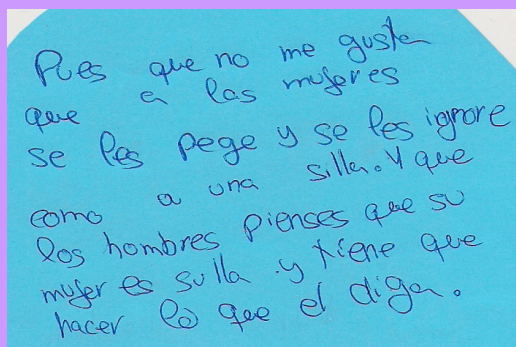 Pues que no me gusta
que a las mujeres
se les pege y se les ignore
como a una silla. Y que
los hombres pienses que su
mujer es sulla y tiene que
hacer lo que el diga.